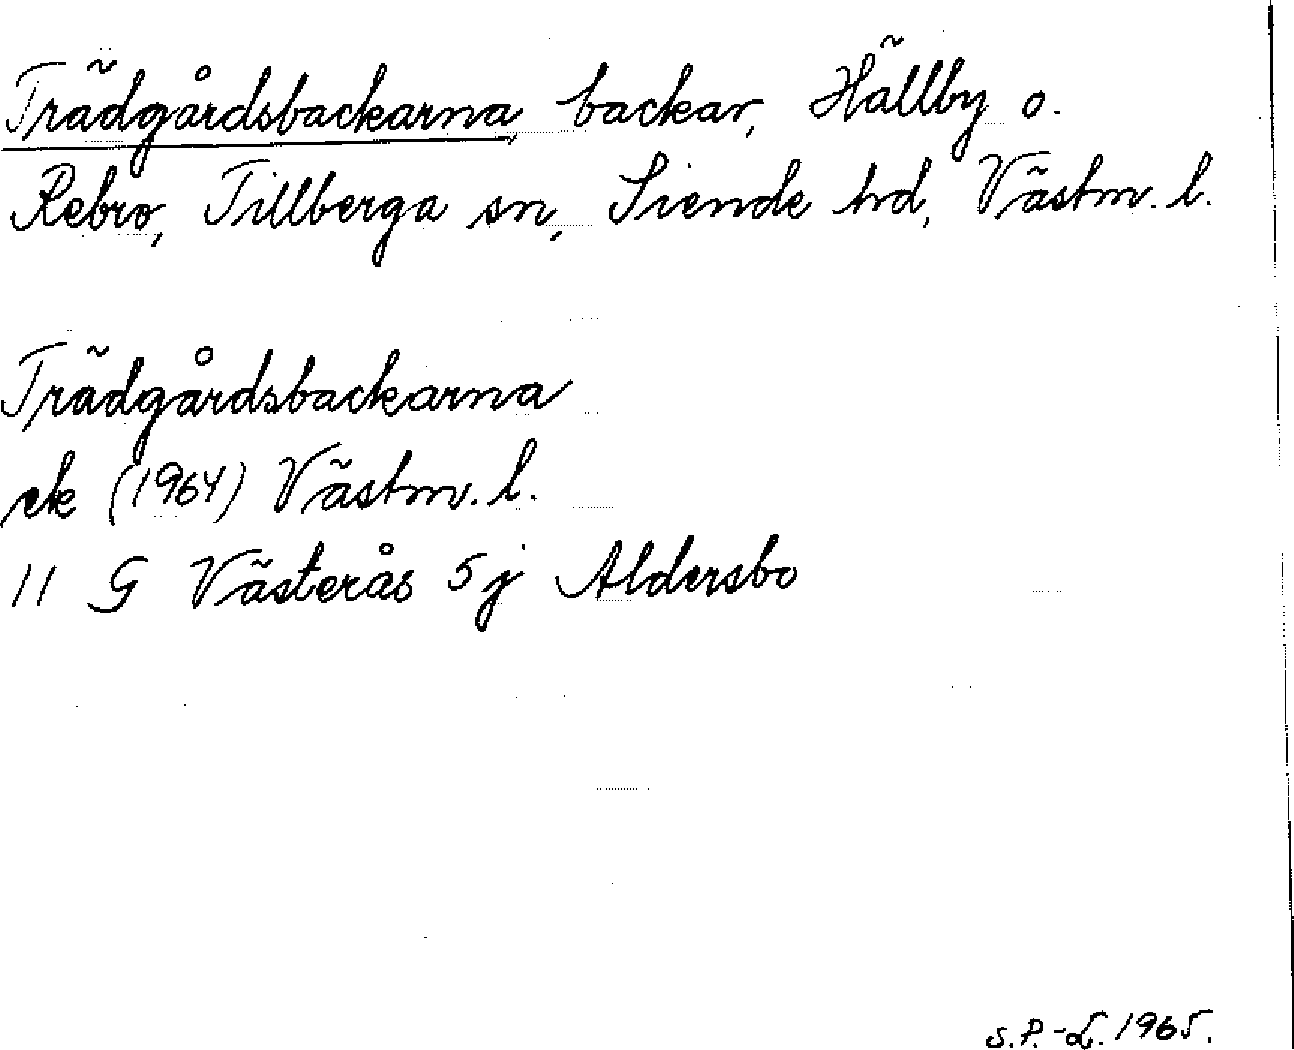 Trädgårdsbackarna, backar, Hällby o.
Rebro, Tillberga sn, Siende hd, Västm. l.
Trädgårdsbackarna
ek (1964) Västm. l.
11 G Västerås 5 j Aldersbo
S.P.-L. 1965.